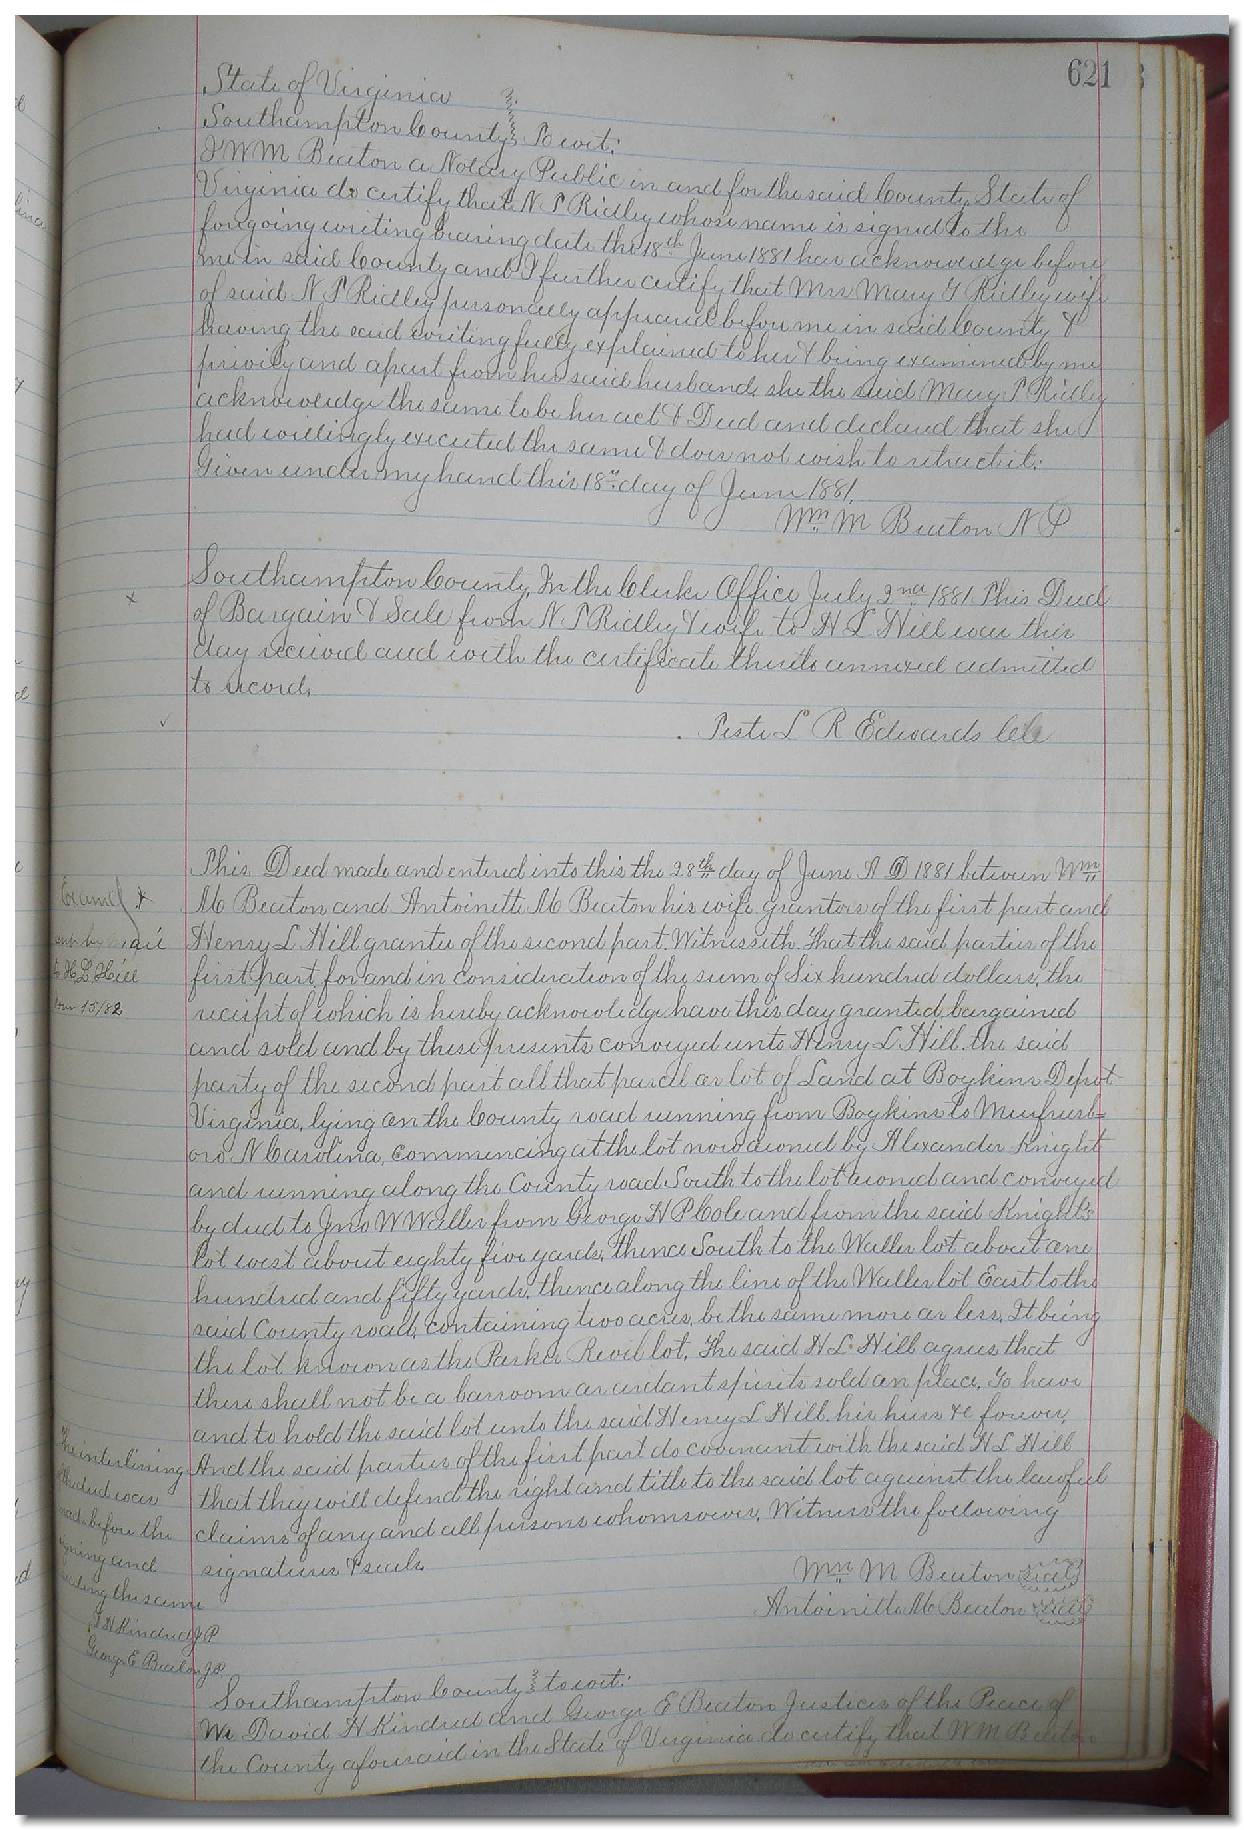 621
State of Virginia
Southampton County, To wit:
I W M Beaton a Notary Public in and for the said County, State of
Virginia do certify that N T Ridley whose name is signed to the
foregoing writing bearing date the 18th June 1881 has acknowledge before
me in said County and I further certify that Mrs Mary T Ridley wife
of said N T Ridley personally appeared before me in said County &
having the said writing fully explained to her & being examined by me
privily and apart from her said husband, she the said Mary T Ridley
acknowledge the same to be her act & Deed and declared that she
had willingly executed the same & does not wish to retract it.
Given under my hand this 18th day of June 1881.
Wm M Beaton N P
Southampton County, In the Clerks Office July 2nd 1881 This Deed
of Bargain & Sale from N T Ridley & wife to H L Hill was this
day received and with the certificate thereto annexed admitted
to record,
Teste L R Edwards Clk
This Deed made and entered into this the 28th day of June A D 1881 between Wm
M Beaton and Antoinette M Beaton his wife grantors of the first part and
Henry L Hill grantee of the second part. Witnesseth. That the said parties of the
first part, for and in consideration of the sum of Six hundred dollars, the
receipt of which is hereby acknowledge have this day granted, bargained
and sold and by these presents conveyed unto Henry L Hill. the said
party of the second part all that parcel or lot of Land at Boykins Depot
Virginia, lying on the County road running from Boykins to Murfreesb=
oro N Carolina, Commencing at the lot now owned by Alexander Knight
and running along the County road South to the lot owned and conveyed
by deed to Jno W Waller from George H P Cole and from the said Knight's
lot west about eighty five yards, thence South to the Waller lot about one
hundred and fifty yards, thence along the line of the Waller lot East to the
said County road, containing two acres, be the same more or less, It being
the lot known as the Parker Revil lot. The said H L Hill agrees that
there shall not be a barroom or ardant spirits sold on place. To have
and to hold the said lot unto the said Henry L Hill his heirs &c forever,
And the said parties of the first part do covenant with the said H L Hill
that they will defend the right and title to the said lot against the lawful
claims of any and all persons whomsoever, Witness the following
signatures & seals.
Wm M Beaton seal
Antoinette M Beaton seal
Examd &
sent by mail
to H L Hill
15/82
The interlining
deed was
made before the
signing and
the same
D H Kindred J P
George E Beaton J P
Southampton County to wit:
We David H Kindred and George E Beaton Justices of the Peace of
the County aforesaid in the State of Virginia do certify that W M Beaton